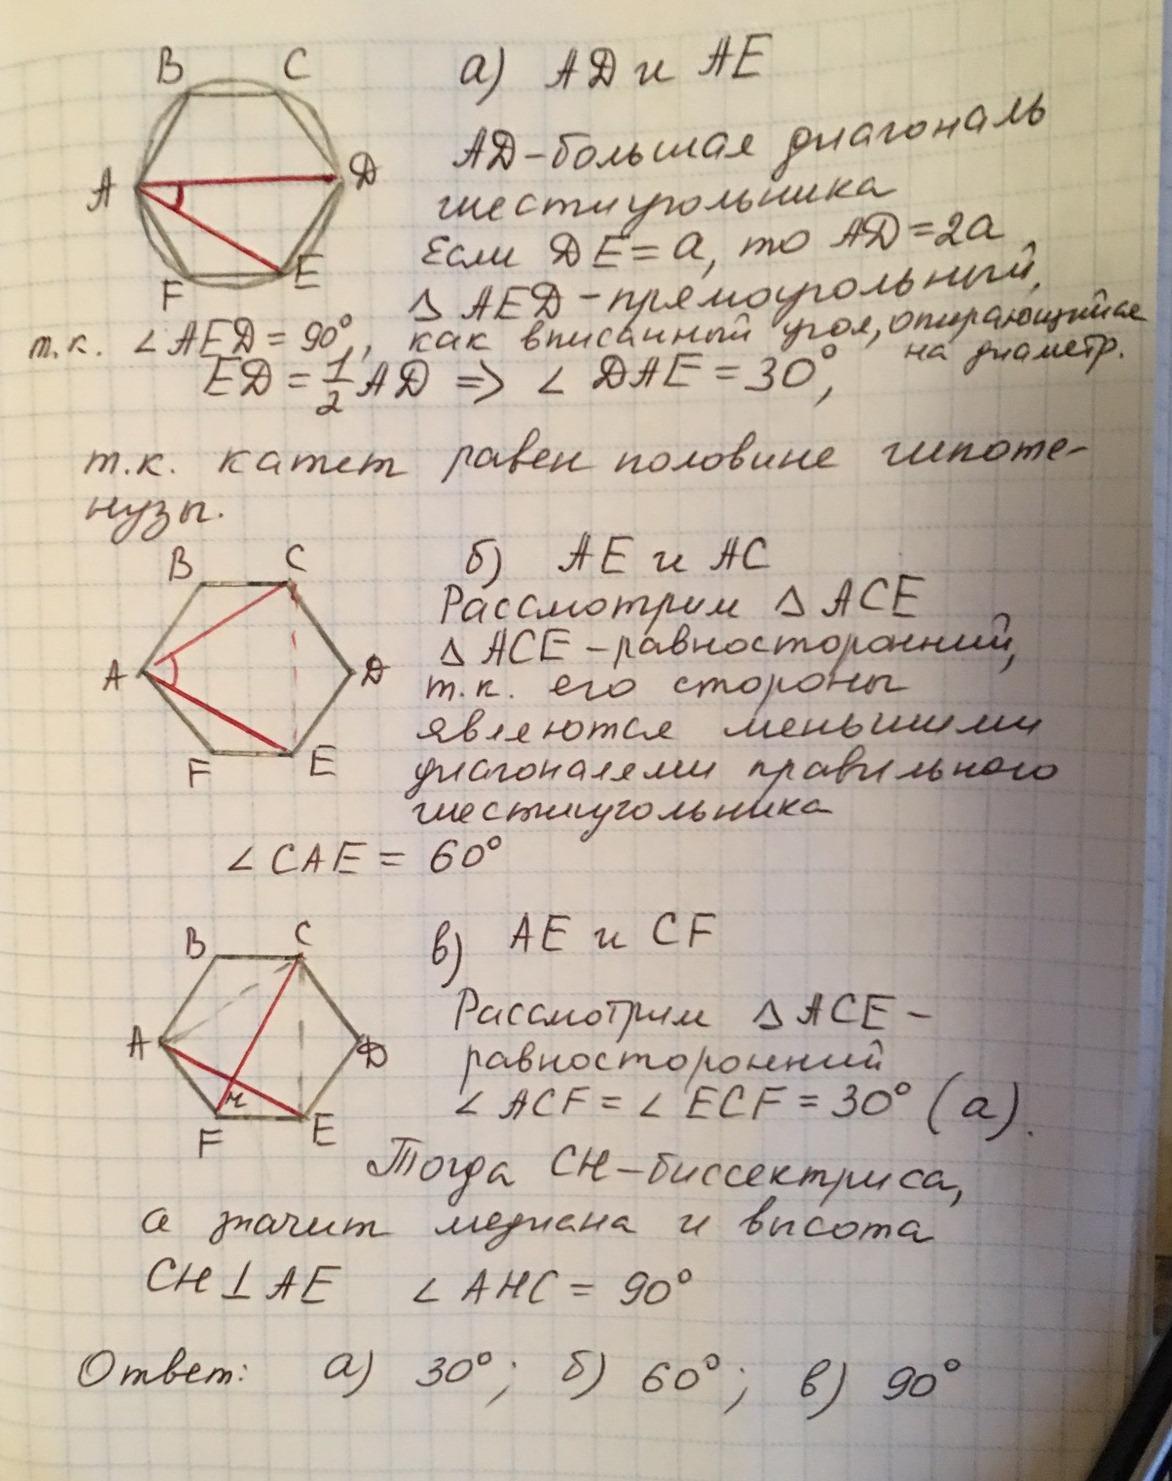 B C
A D
F E
а) AD и AE
AD – большая диагональ
шестиугольника
Если DE = a, то AD = 2a
△ AED – прямоугольный,
т.к. ∠AED = 90°, как вписанный угол, опирающийся
на диаметр.
ED = 1/2 AD => ∠ DAE = 30°,
т.к. катет равен половине гипоте-
нузы.
B C
A D
F E
б) AE и AC
Рассмотрим △ ACE
△ ACE – равносторонний,
т.к. его стороны
являются меньшими
диагоналями правильного
шестиугольника
∠CAE = 60°
B C
A D
H
F E
в) AE и CF
Рассмотрим △ ACE –
равносторонний
∠ ACF = ∠ ECF = 30° (а).
Тогда CH – биссектриса,
а значит медиана и высота
CH ⊥ AE ∠ AHC = 90°
Ответ: а) 30°; б) 60°; в) 90°